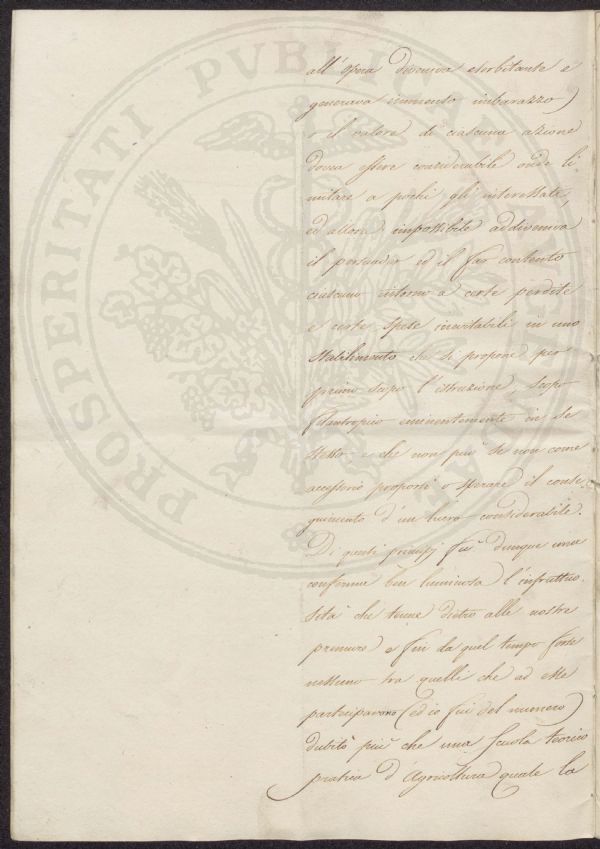 all'opera diveniva esorbitante e
generava immenso imbarazzo)
o il valore di ciascuna azione
dovea essere considerabile onde li
mitare a pochi gli interessati,
ed allora impossibile addiveniva
il persuader ed il far contento
ciascuno intorno a certe perdite
e certe spese inevitabili in uno
stabilimento che si propone per
primo scopo l'istruzione, scopo
filantropico eminentemente in se
stesso e che non può se non come
accessorio proporsi o sperare il conse
guimento d'un lucro considerabile.
Di questi principj fu dunque una
conferma ben luminosa l'infruttuo
sità che tenne dietro alle nostre
premure e fin da quel tempo forse
nessuno tra quelli che ad esse
partecipavano (ed io fui del numero)
dubitò più che una Scuola teorico
pratica d'Agricoltura quale la
PROSPERITATI PVBLICAE